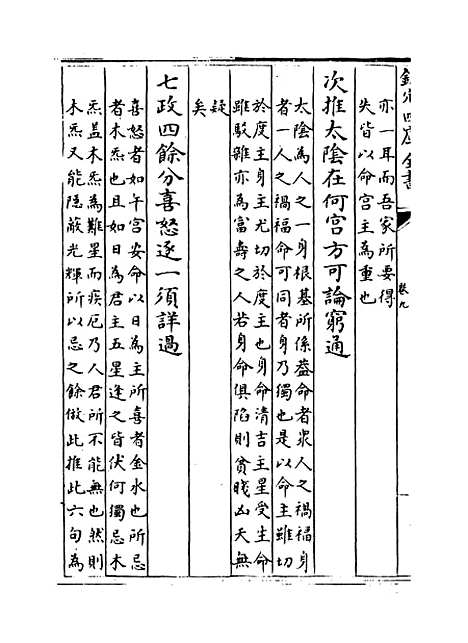 欽定四庫全書
卷九
亦一耳而吾家所要得
失皆以命宮主為重也
次推太陰在何宮方可論窮通
太陰為人之一身根基所係葢命者衆人之禍福身
者一人之禍福命可同者身乃獨也是以命主雖切
於度主身主尤切於度主也身命清吉主星受生命
雖駁雜亦為富壽之人若身命俱陷則貧賤凶夭無
疑
矣
七政四餘分喜怒逐一須詳過
喜怒者如午宮安命以日為主所喜者金水也所忌
者木炁也且如日為君主五星逢之皆伏何獨忌木
炁盖木炁為難星而疾厄乃人君所不能無也然則
木炁又能隱蔽光輝所以忌之餘倣此推此六句為